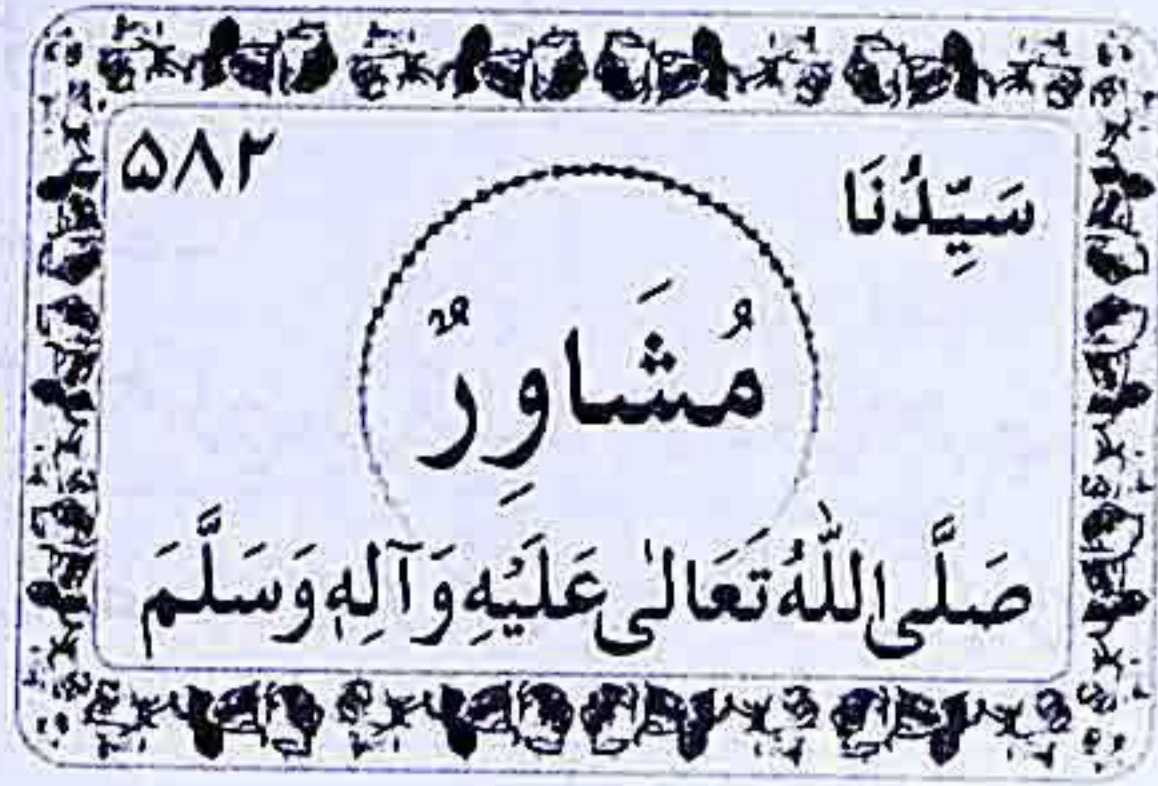 سَيِّدُنَا ۵۸۲
مُشَاوِرٌ
صَلَّى اللّٰهُ تَعَالٰى عَلَيْهِ وَآلِهٖ وَسَلَّمَ